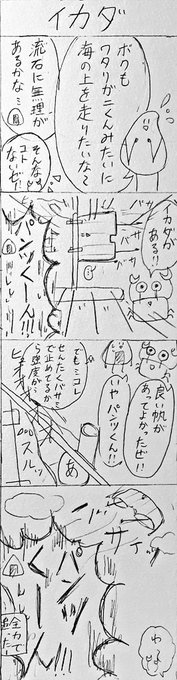 イカダ
ボクも
ワタリガニくんみたいに
海の上を走りたいな〜
流石に無理が
あるかな…
そんな
コト
ないぜ!!
イカダが
ある!!
バサ
バサ
パンツくーん!!!
良い帆が
あってよかったぜ!!
いやパンツくん!!
でもコレ
せんたくバサミ
で止めてるか
ら強度が…
ヒュオオ
スルッ
あ
バサァ
パンツくーん!!!
わぁ
全力で
追った